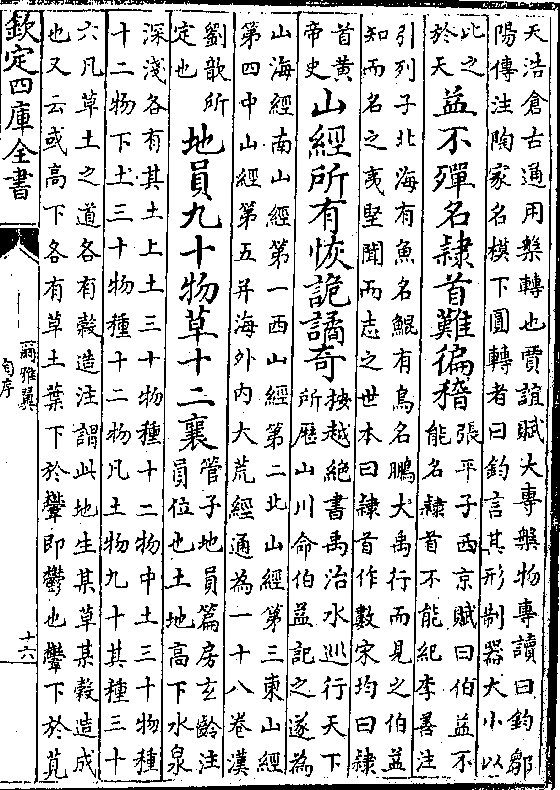 天浩倉古通用槃轉也賈誼賦大專槃物專讀曰鈞鄒
陽傳注陶家名模下圓轉者曰鈞言其形制器大小以
此之
於天
益不殫名隷首難徧稽
張平子西京賦曰伯益不
能名隷首不能紀李善注
引列子北海有魚名鯤有鳥名鵬大禹行而見之伯益
知而名之夷堅聞而志之世本曰隷首作數宋均曰隷
首黃
帝史
山經所有恢詭譎奇
按越絶書禹治水巡行天下
所歴山川命伯益記之遂為
山海經南山經第一西山經第二北山經第三東山經
第四中山經第五并海外内大荒經通為一十八卷漢
劉歆所
定也
地員九十物草十二衰
管子地員篇房玄齡注
員位也土地高下水泉
深淺各有其土上土三十物種十二物中土三十物種
十二物下土三十物種十二物凡土物九十其種三十
六凡草土之道各有榖造注謂此地生某草某榖造成
也又云或高下各有草土葉下於即鬱也下於莧
欽定四庫全書
爾雅翼
自序
十六